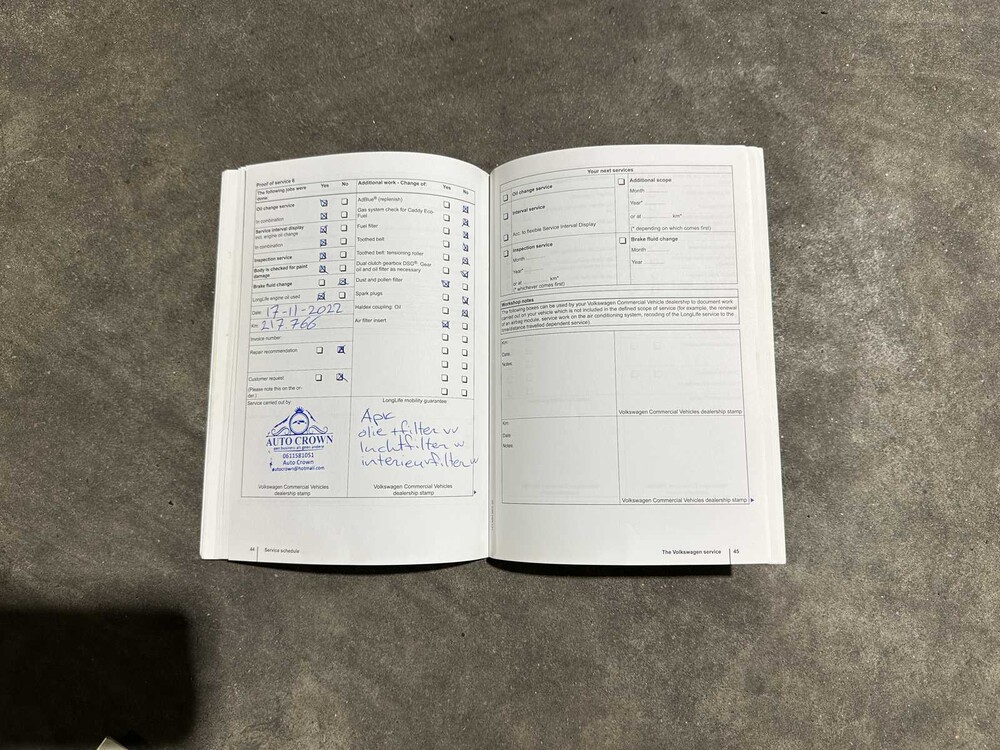 Proof of service 6
Yes No
The following jobs were done:
Oil change service
In combination
Service interval display
incl. engine oil change
In combination
Inspection service
Body is checked for paint
damage
Brake fluid change
LongLife engine oil used
Date: 17-11-2022
Km: 217.766
Invoice number:
Repair recommendation
Customer request
(Please note this on the or-
der.)
Service carried out by:
AUTO CROWN
0611581051
Auto Crown
autocrown@hotmail.com
Volkswagen Commercial Vehicles
dealership stamp
Additional work - Change of:
Yes No
AdBlue® (replenish)
Gas system check for Caddy Eco-
Fuel
Fuel filter
Toothed belt
Toothed belt: tensioning roller
Dual clutch gearbox DSG®: Gear
oil and oil filter as necessary
Dust and pollen filter
Spark plugs
Haldex coupling: Oil
Air filter insert
LongLife mobility guarantee
Apk
olie +filter vv
luchtfilter vv
interieurfilter vv
Volkswagen Commercial Vehicles
dealership stamp
44 Service schedule
Your next services
Oil change service
Interval service
Acc. to flexible Service Interval Display
Inspection service
Month
Year*
or at km*
(* whichever comes first)
Additional scope
Month
Year*
or at km*
(* depending on which comes first)
Brake fluid change
Month
Year
Workshop notes
The following boxes can be used by your Volkswagen Commercial Vehicle dealership to document work
carried out on your vehicle which is not included in the defined scope of service (for example, the renewal
of an airbag module, service work on the air conditioning system, recoding of the LongLife service to the
time/distance travelled dependent service).
Km:
Date:
Notes:
Volkswagen Commercial Vehicles dealership stamp
Km:
Date:
Notes:
Volkswagen Commercial Vehicles dealership stamp
The Volkswagen service 45